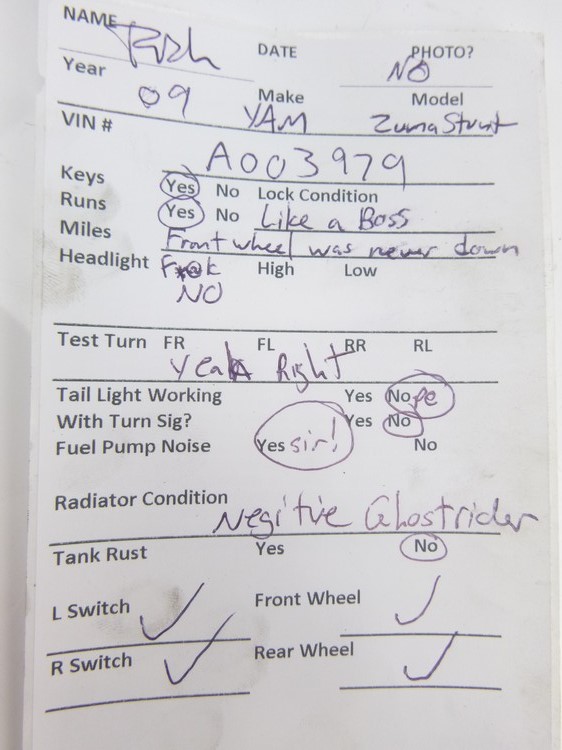 NAME DATE PHOTO?
NO
Year 09 Make YAM Model Zuma Strunt
VIN # A003979
Keys Yes No Lock Condition
Runs Yes No Like a Boss
Miles Front wheel was never down
Headlight F*@k High Low
NO
Test Turn FR FL RR RL
Yeah Right
Tail Light Working Yes Nope
With Turn Sig? Yes No
Fuel Pump Noise Yes sir! No
Radiator Condition Negitive Ghostrider
Tank Rust Yes No
L Switch ✓ Front Wheel ✓
R Switch ✓ Rear Wheel ✓